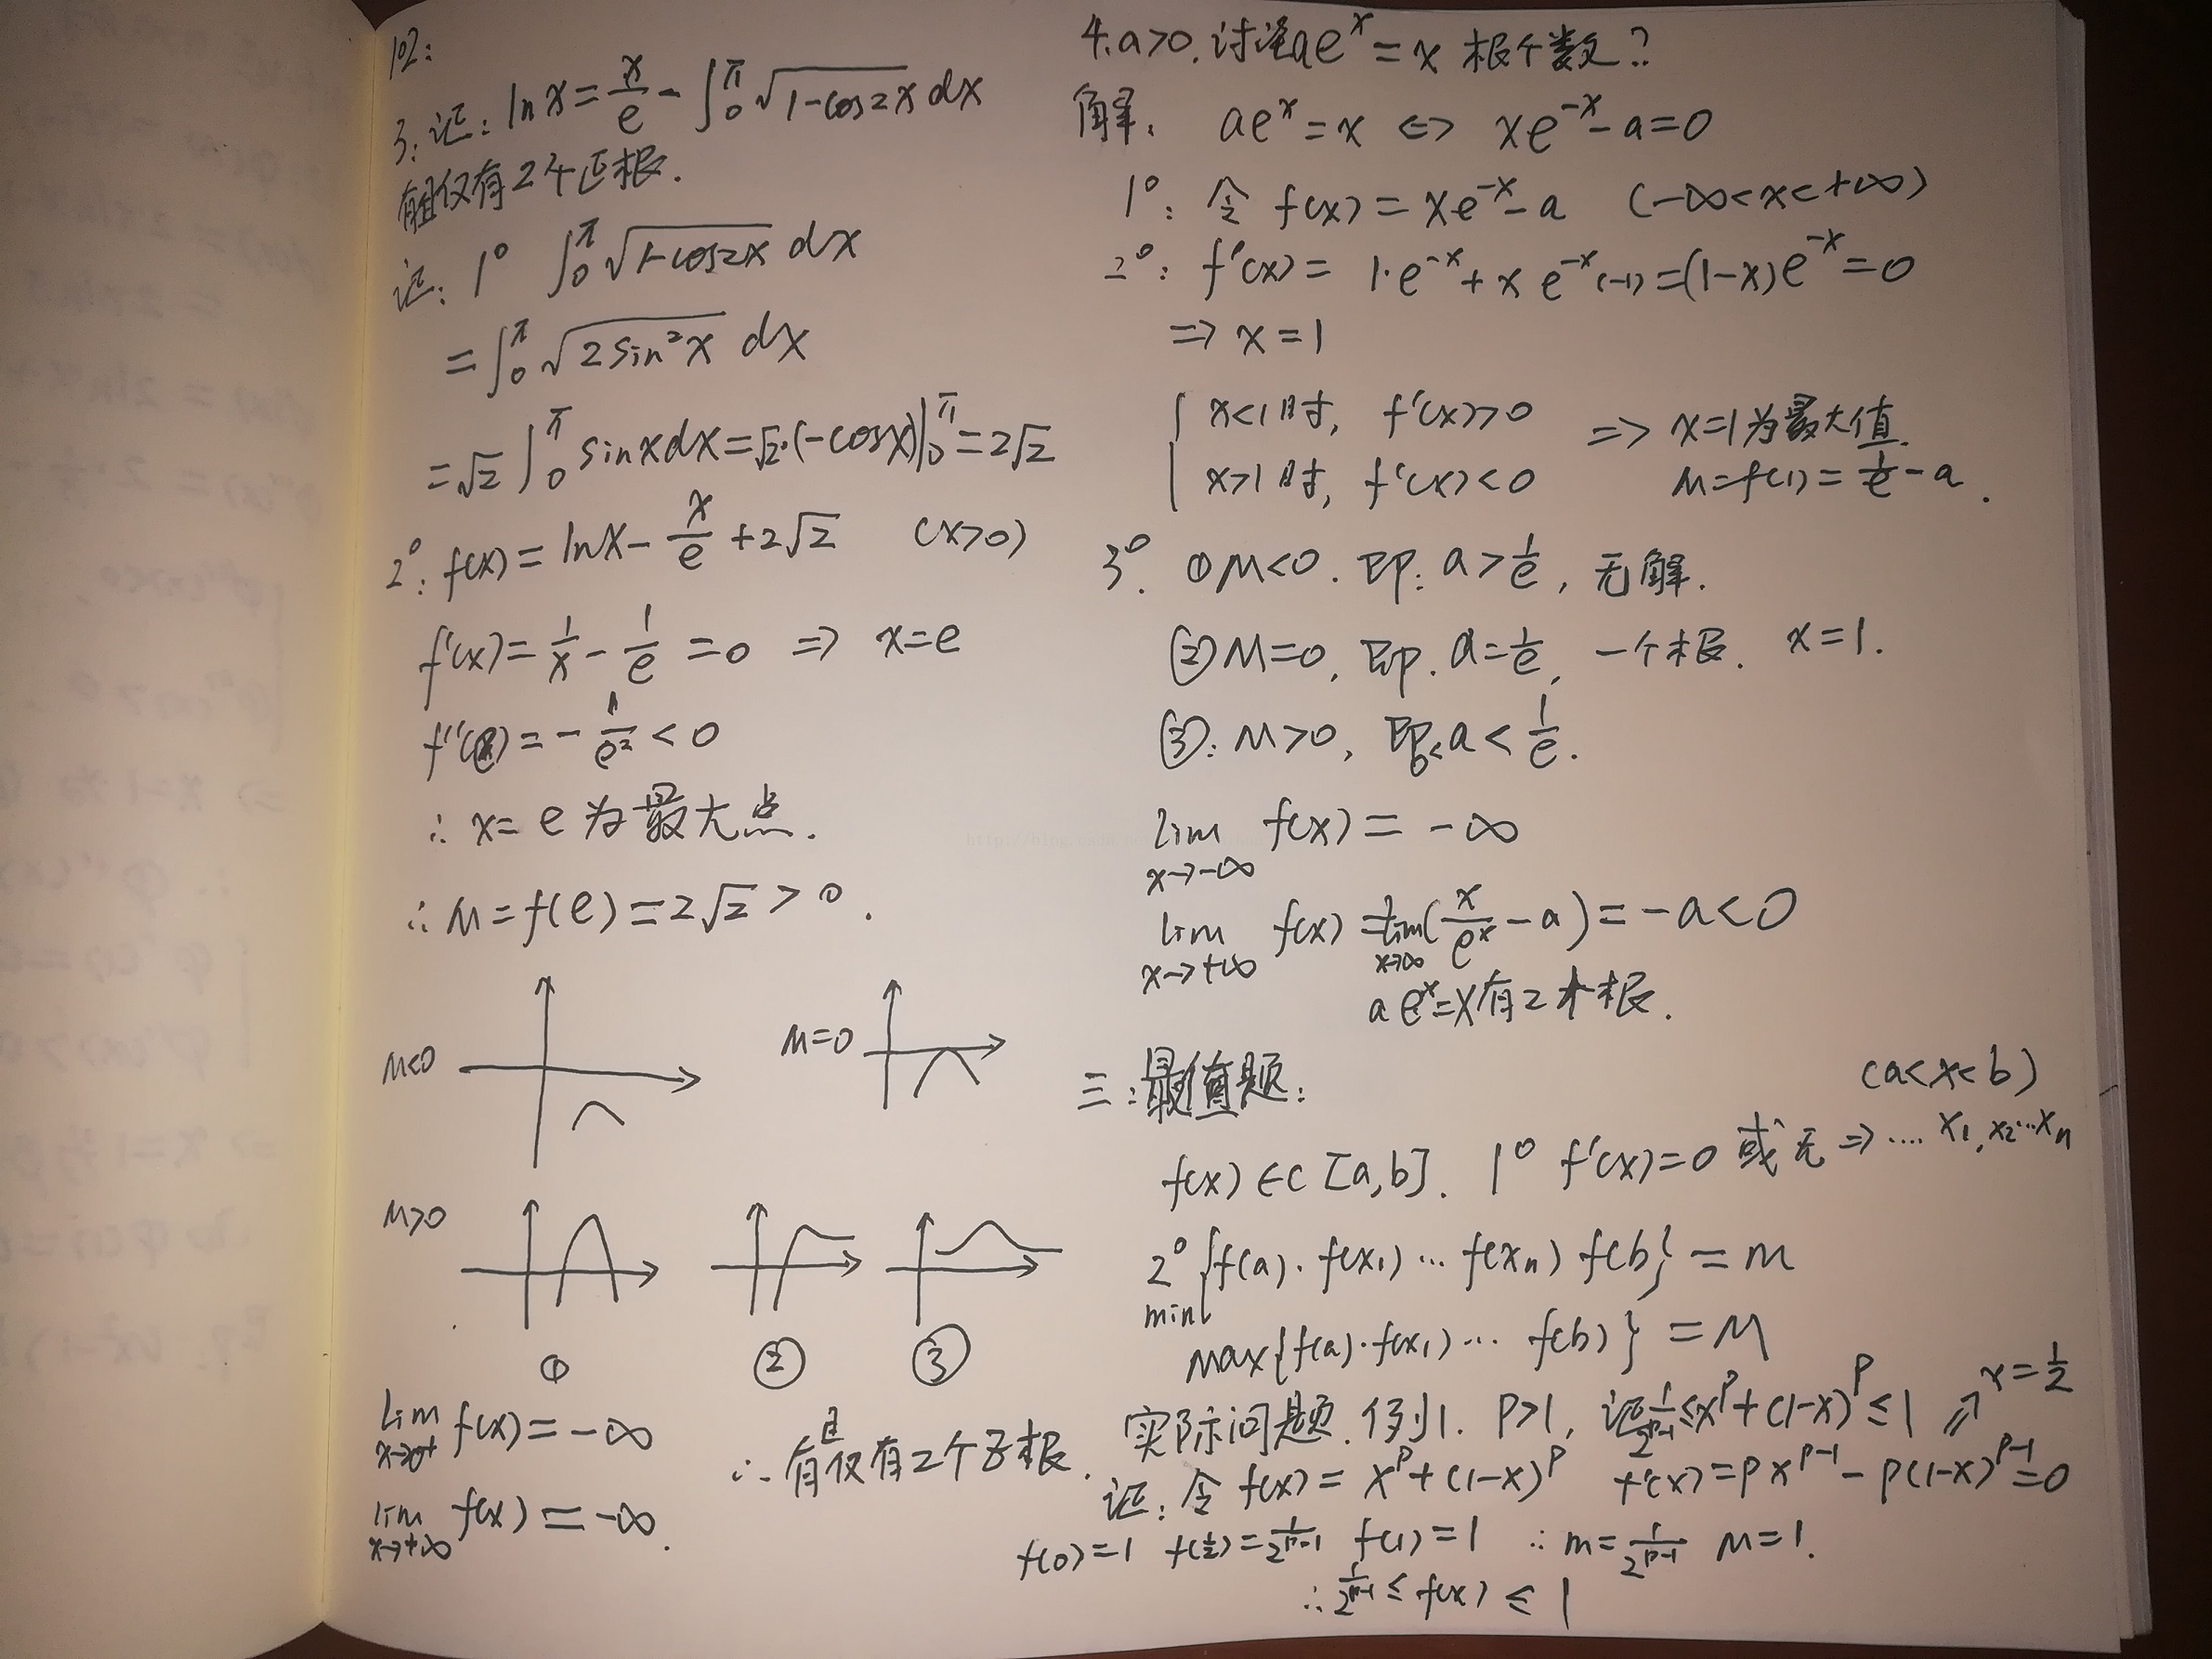 102:
3. 记: ln x = x/e - ∫₀^π √(1-cos2x) dx
有且仅有2个正根.
证: 1° ∫₀^π √(1-cos2x) dx
= ∫₀^π √(2sin²x) dx
= √2 ∫₀^π sinxdx = √2·(-cosx)|₀^π = 2√2
2°: f(x) = lnx - x/e + 2√2 (x>0)
f'(x) = 1/x - 1/e = 0 ⇒ x=e
f''(e) = - 1/e² < 0
∴ x= e 为最大点.
∴ M = f(e) = 2√2 > 0.
M<0
M=0
M>0
① ② ③
lim x→0+ f(x) = -∞
lim x→+∞ f(x) = -∞.
∴ 有且仅有2个正根.
4. a>0. 讨论 ae^x = x 根个数?
解: ae^x = x ⇔ xe^-x - a = 0
1°: 令 f(x) = xe^-x - a (-∞<x<+∞)
2°: f'(x) = 1·e^-x + x e^-x (-1) = (1-x)e^-x = 0
⇒ x = 1
{ x<1时, f'(x)>0 ⇒ x=1为最大值.
x>1时, f'(x)<0 M=f(1) = 1/e - a.
3°. ① M<0. 即: a > 1/e, 无解.
② M=0, 即. a = 1/e, 一个根. x=1.
③: M>0, 即 0<a < 1/e.
lim x→-∞ f(x) = -∞
lim x→+∞ f(x) = lim x→∞ (x/e^x - a) = -a < 0
ae^x=x有2个根.
三: 最值题: (a<x<b)
f(x) ∈ C [a,b]. 1° f'(x)=0 或无 ⇒ .... x₁,x₂...xₙ
2° min{f(a)·f(x₁)...f(xₙ) f(b)} = m
max{f(a)·f(x₁)... f(b)} = M
实际问题. 例1. P>1, 证 1/2^(p-1) ≤ x^p + (1-x)^p ≤ 1 ⇗ x=1/2
证: 令 f(x) = x^p + (1-x)^p f'(x) = px^(p-1) - p(1-x)^(p-1) = 0
f(0)=1 f(1/2)= 1/2^(p-1) f(1)=1 ∴ m = 1/2^(p-1) M=1.
∴ 1/2^(p-1) ≤ f(x) ≤ 1